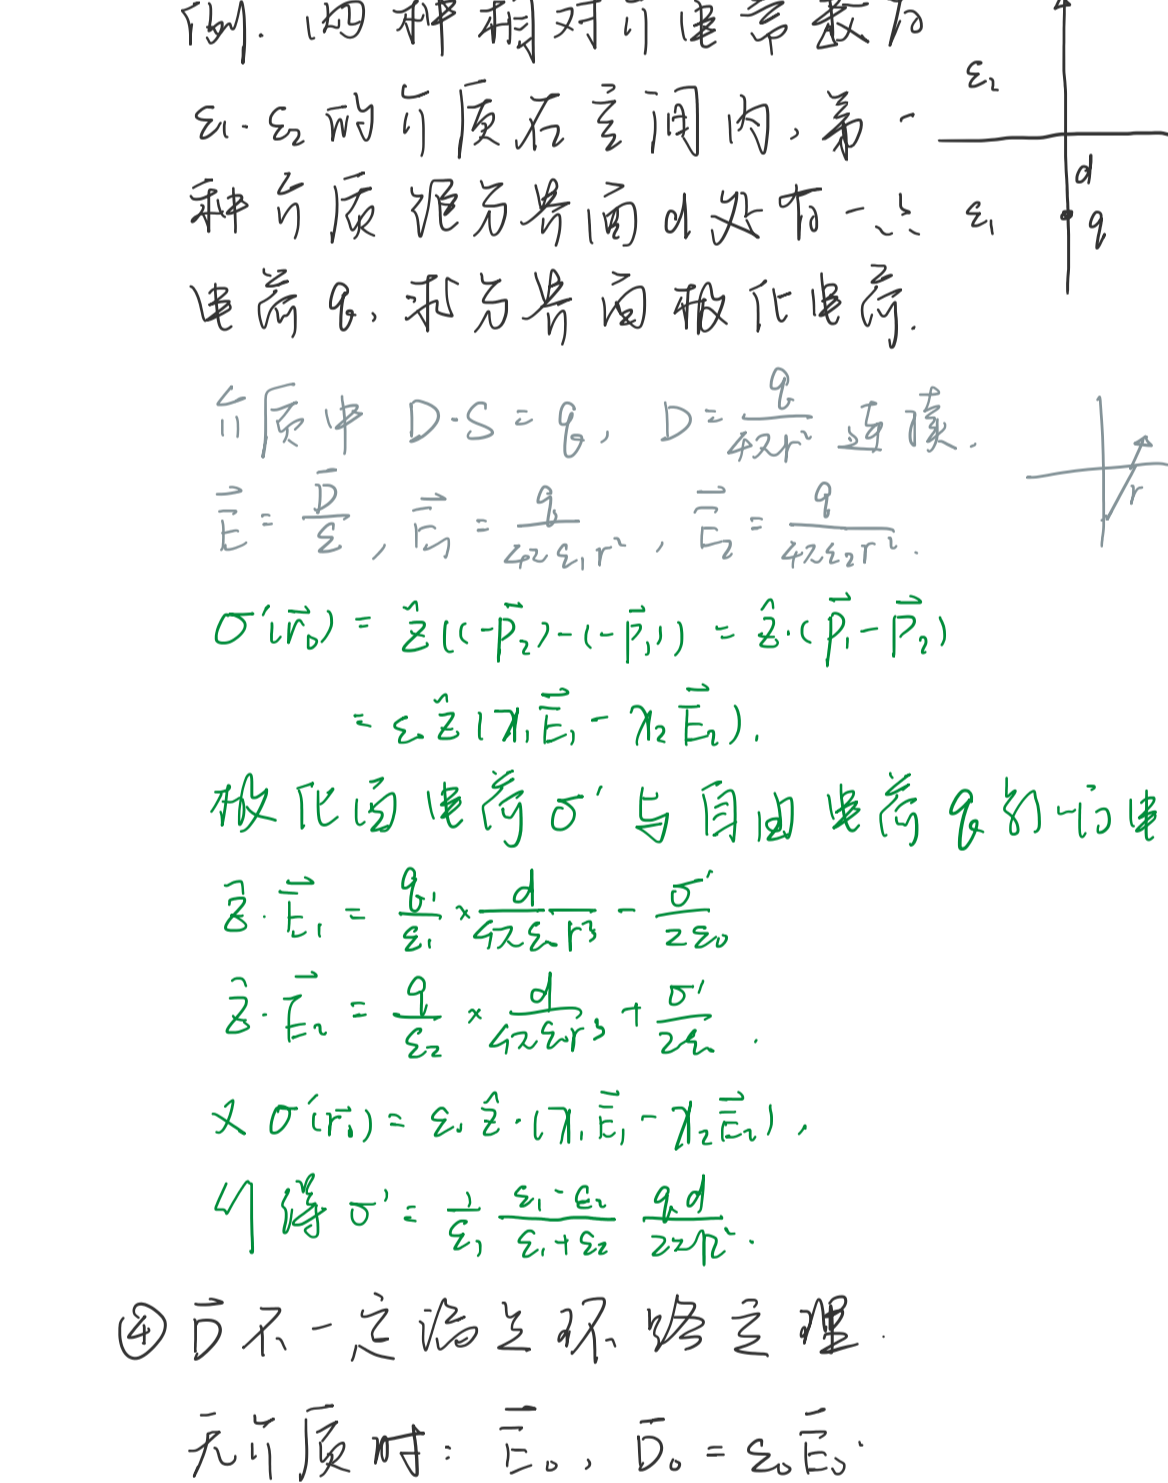 例. 两种相对介电常数为
ε₁. ε₂ 的介质在空间内, 第一
种介质距分界面d处有一点
电荷q, 求分界面极化电荷.
ε₂
d
ε₁
q
介质中 D·S = q, D = q/4πr² 连续.
r
E⃗ = D⃗/ε, E⃗₁ = q/4πε₁r², E⃗₂ = q/4πε₂r².
σ'(r⃗₀) = ẑ((-P⃗₂)-(-P⃗₁)) = ẑ·(P⃗₁-P⃗₂)
= ε₀ẑ(χ₁E⃗₁ - χ₂E⃗₂).
极化面电荷σ'与自由电荷q
ẑ·E⃗₁ = q/ε₁ × d/4πε₀r³ - σ'/2ε₀
ẑ·E⃗₂ = q/ε₂ × d/4πε₀r³ + σ'/2ε₀.
又 σ'(r⃗₀) = ε₀ẑ·(χ₁E⃗₁ - χ₂E⃗₂),
得 σ' = 1/ε₁ (ε₁-ε₂)/(ε₁+ε₂) qd/2πr².
④ D⃗不一定满足环路定理.
无介质时: E⃗₀, D⃗₀ = ε₀E⃗₀.